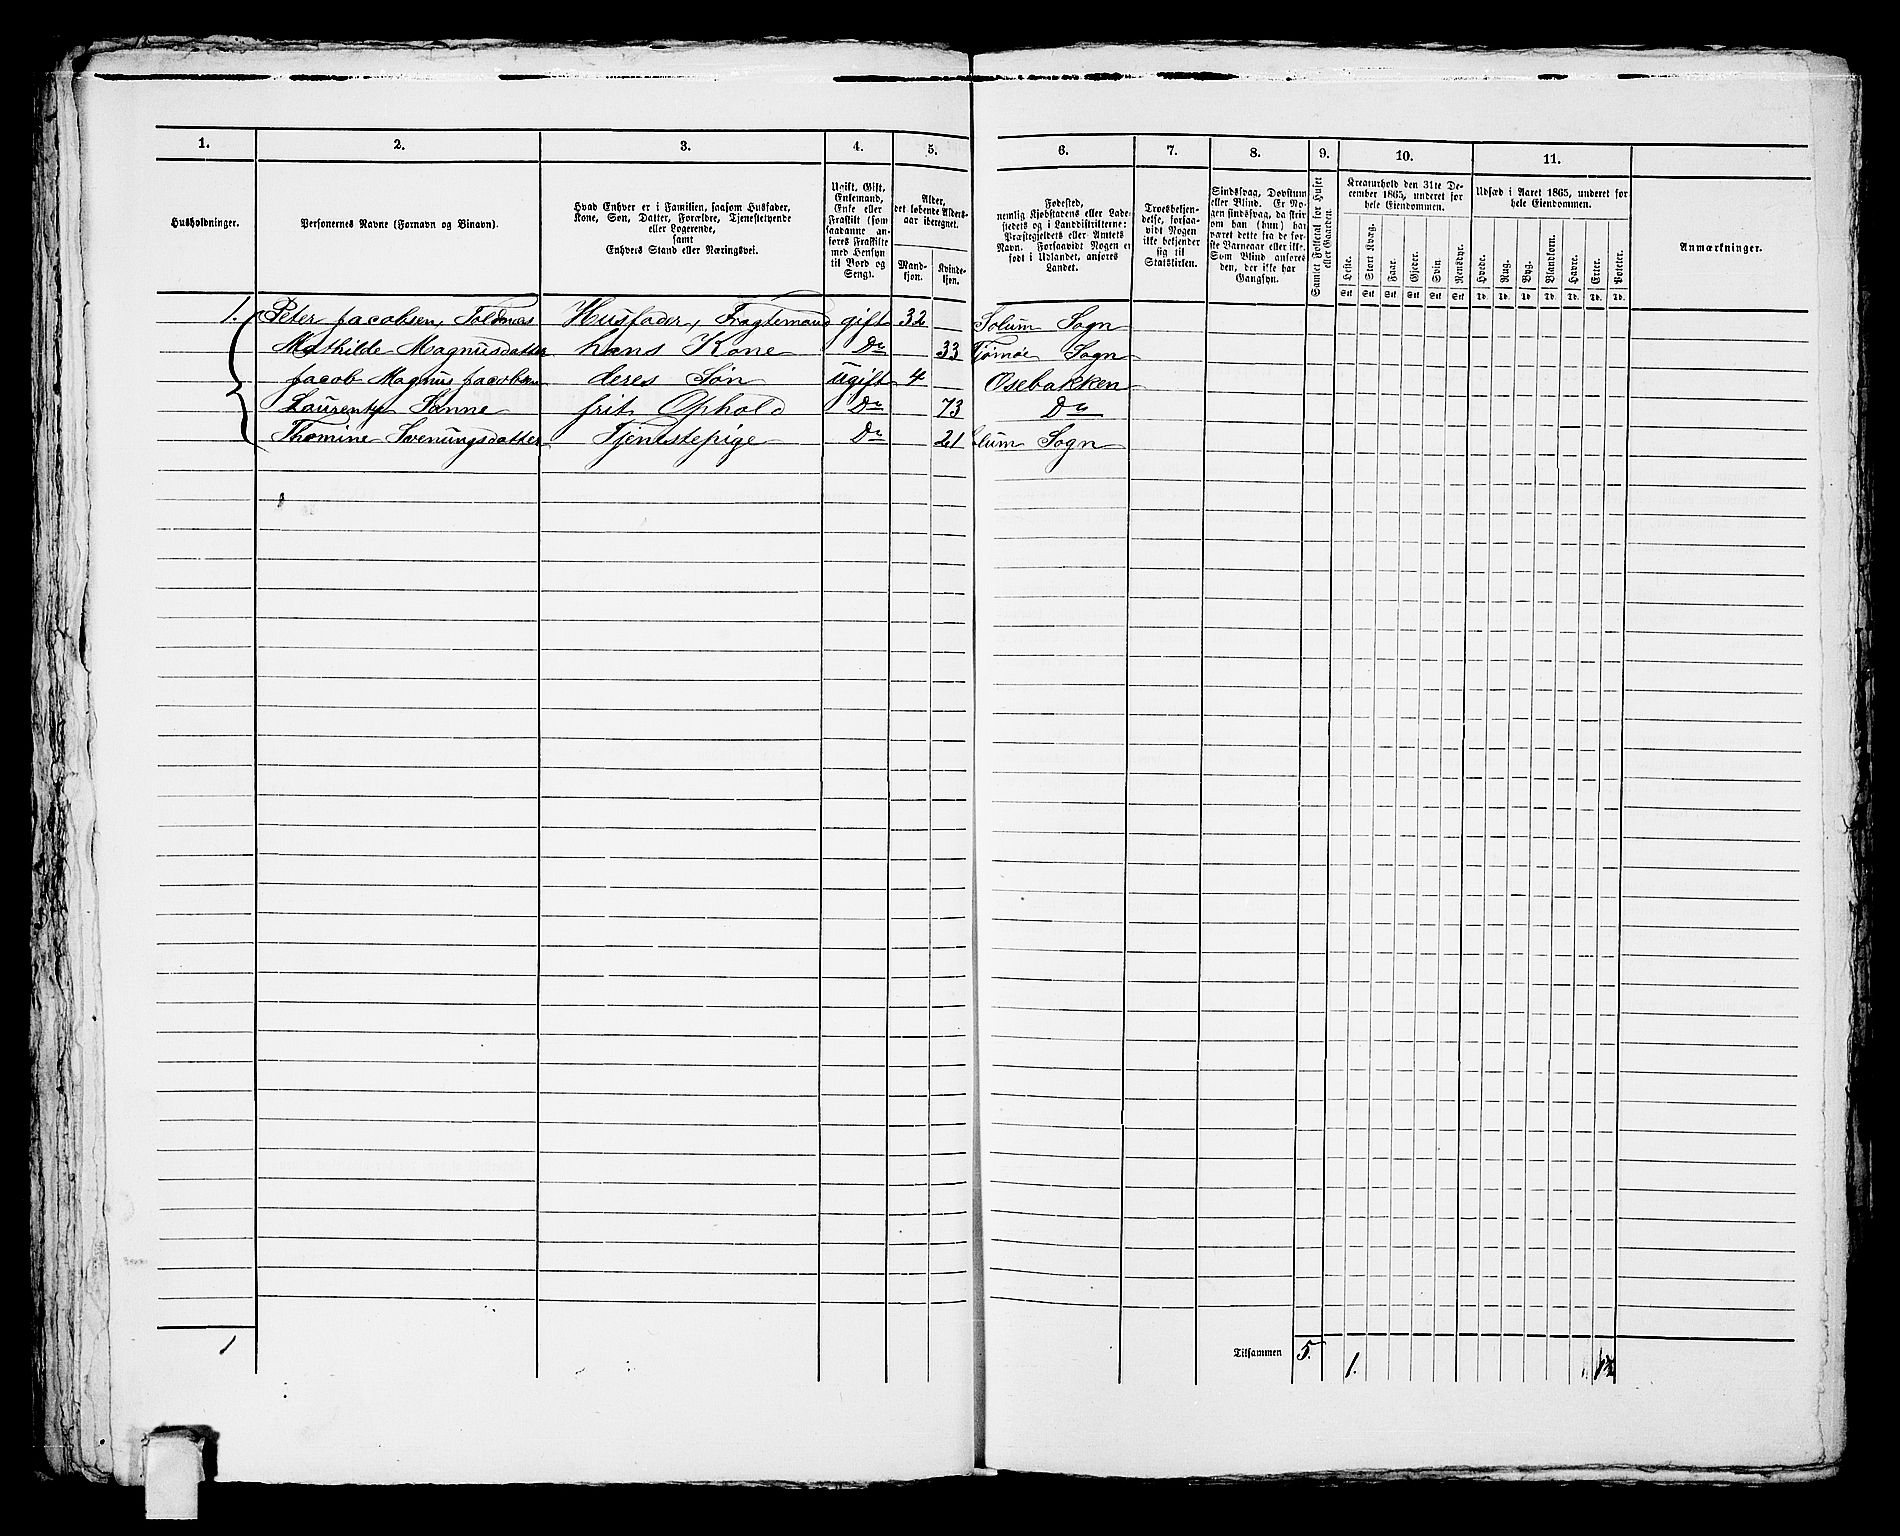 1. 2. 3. 4. 5. 6. 7. 8. 9. 10. 11.
Husholdninger.
Personernes Navne (Fornavn og Binavn).
Hvad Enhver er i Familien, saasom Husfader,
Kone, Søn, Datter, Forældre, Tjenestetyende
eller Logerende,
samt
Enhvers Stand eller Næringsvei.
Ugift, Gift,
Enkemand,
Enke eller
Fraskilt (som
saadanne an-
føres Fraskilte
med Hensyn
til Bord og
Seng).
Alder,
det løbende Alders-
aar iberegnet.
Mand-
kjøn.
Kvinde-
kjøn.
Fødested,
nemlig Kjøbstadens eller Lade-
stedets og i Landdistrikterne:
Præstegjeldets eller Amtets
Navn. Forsaavidt Nogen er
født i Udlandet, anføres
Landet.
Troesbekjen-
delse, forsaa-
vidt Nogen
ikke bekjender
sig til
Statskirken.
Sindssvag, Døvstum
eller Blind. (Er No-
gen sindssvag, da skriv
om han (hun) har
været dette fra de før-
ste Barneaar eller ikke.
Som Blind anføres
den, der ikke har
Gangsyn.
Samlet Folketal for Huset
eller Gaarden.
Kreaturhold den 31te De-
cember 1865, underet for
hele Eiendommen.
Heste. Stort Kvæg. Faar. Gjeder. Svin. Rensdyr.
Stk Stk Stk Stk Stk Stk
Udsæd i Aaret 1865, underet for
hele Eiendommen.
Hvede. Rug. Byg. Blandkorn. Havre. Erter. Poteter.
Td. Td. Td. Td. Td. Td. Td.
Anmærkninger.
1. Peter Jacobsen, Toldnæs Husfader, Fragtemand gift 32 Solum Sogn
Mathilde Magnusdatter hans Kone Do 33 Tjømøe Sogn
Jacob Magnus Jacobsen deres Søn ugift 4 Osebakken
Laurentze Sanne frit Ophold Do 73 Do
Thomine Svenungsdatter Tjenestepige Do 21 Solum Sogn
1 Tilsammen 5. 1.